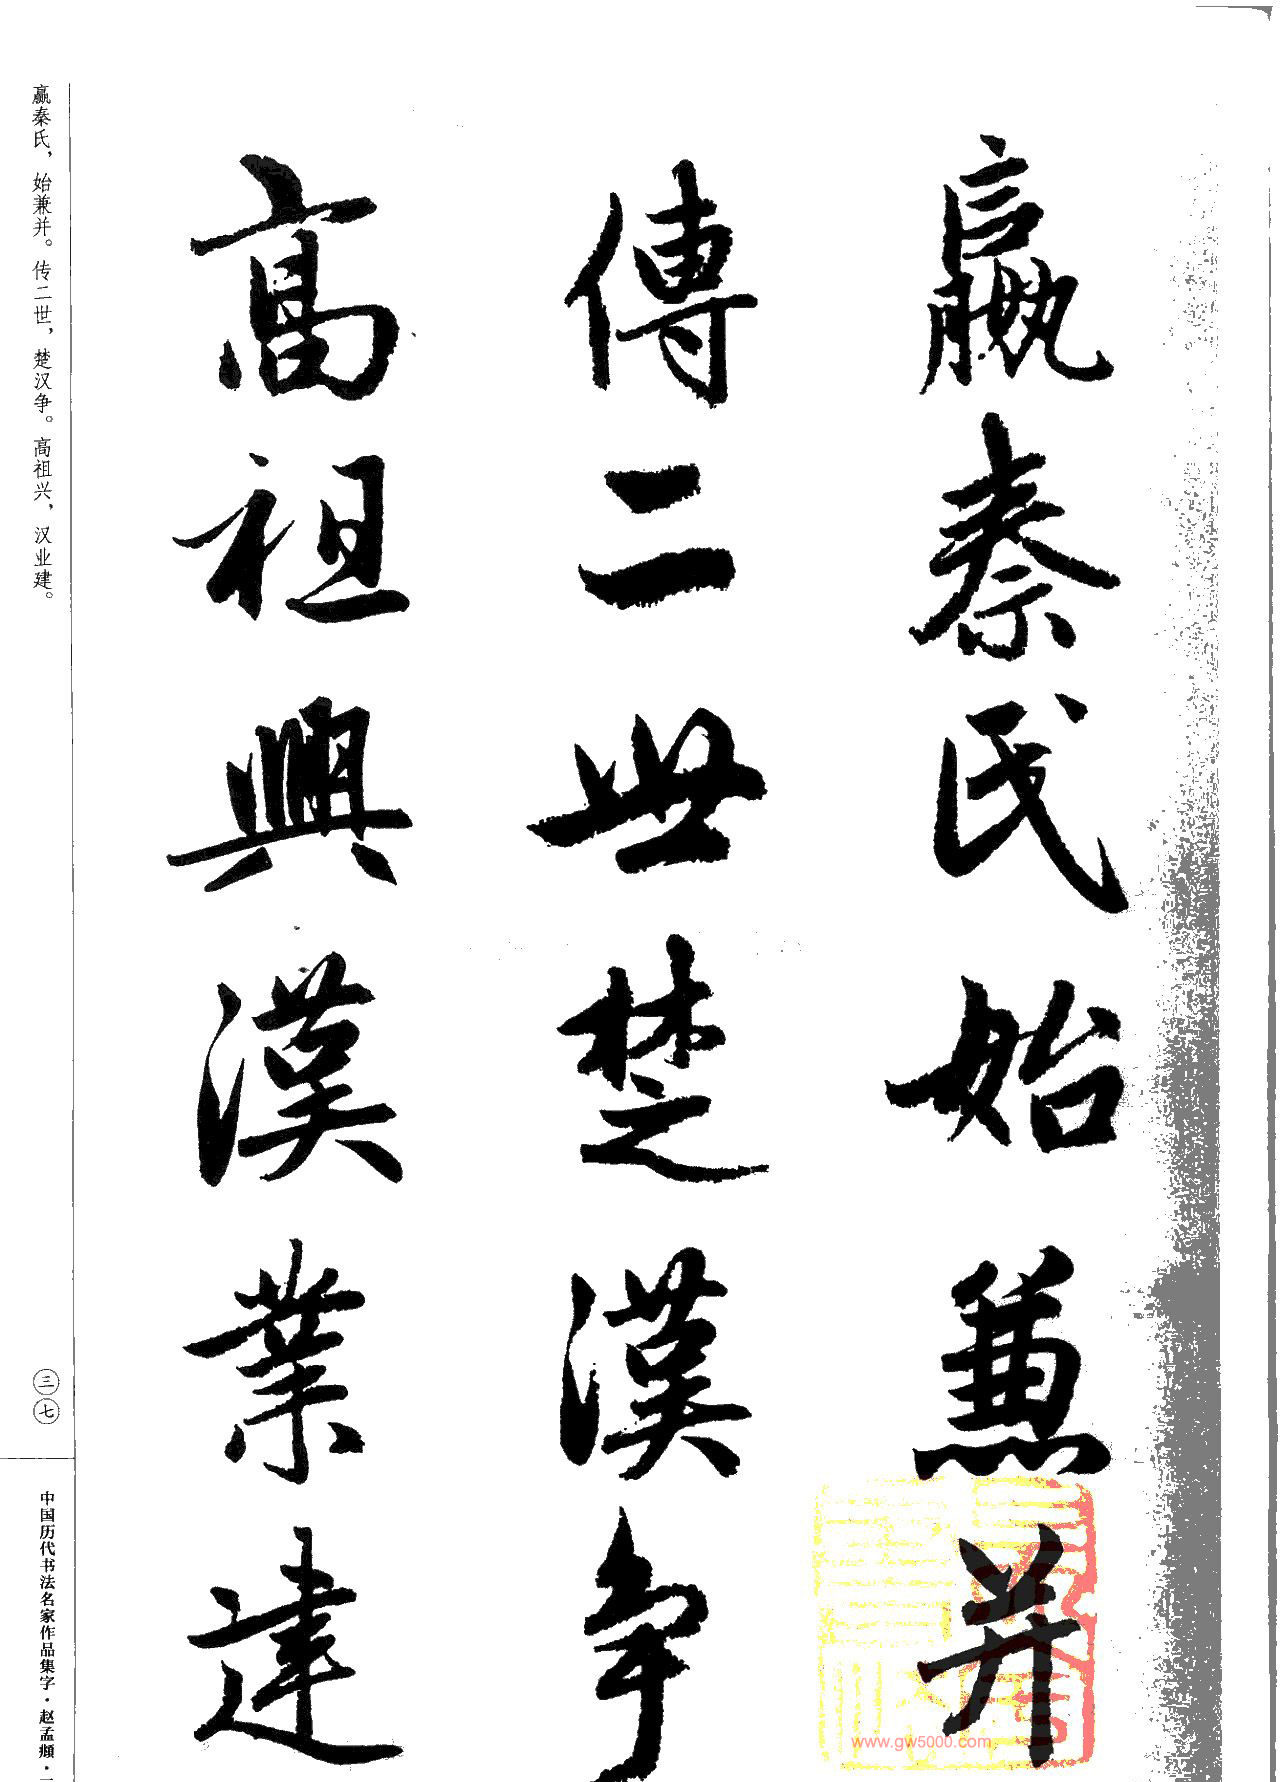 嬴秦氏始兼并
傳二世楚漢争
高祖興漢業建
赢秦氏，始兼并。传二世，楚汉争。高祖兴，汉业建。
三七
中国历代书法名家作品集字·赵孟頫·
www.gw5000.com